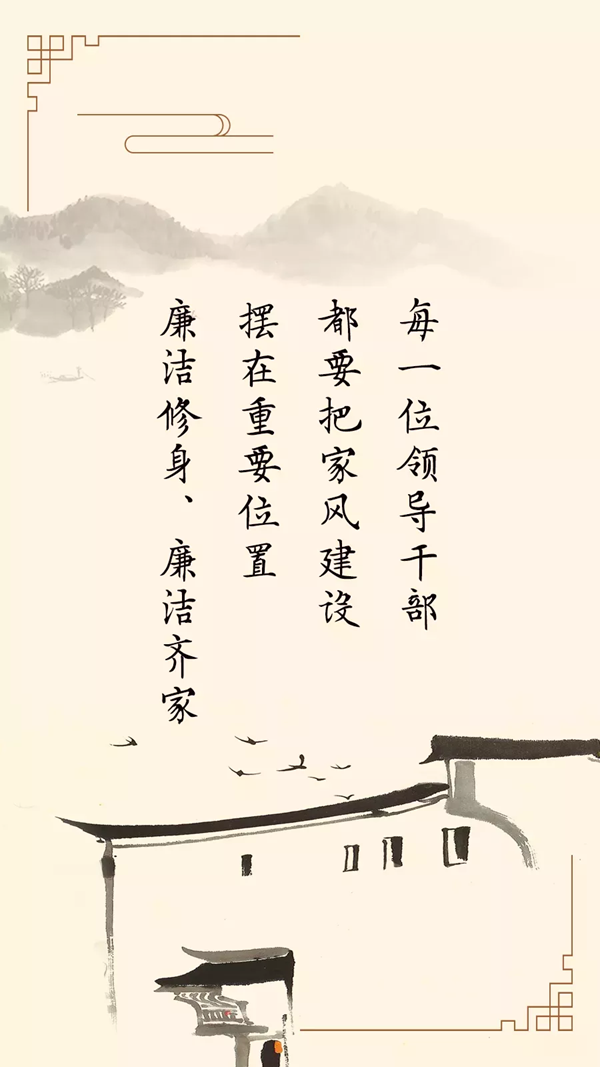 每一位领导干部
都要把家风建设
摆在重要位置
廉洁修身、廉洁齐家